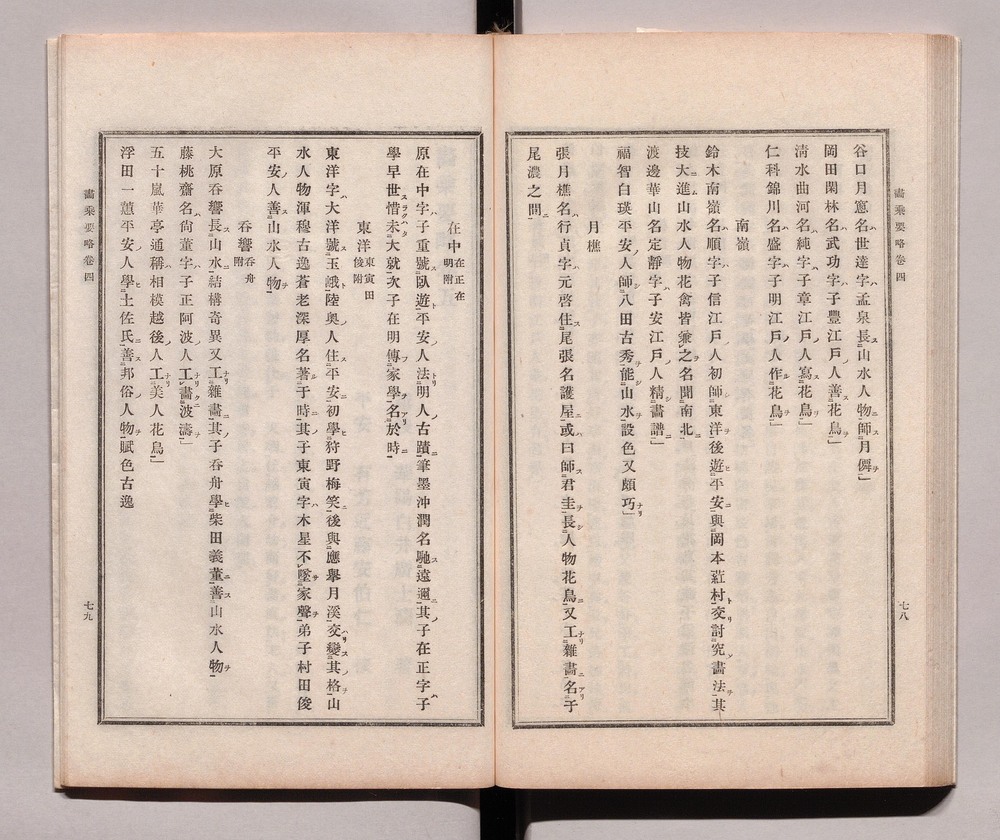 畫乘要略卷四
七八
谷口月窻名世達字孟泉長山水人物師月僲
岡田閑林名武功字子豐江戶人善花鳥
淸水曲河名純字子章江戶人寫花鳥
仁科錦川名盛字子明江戶人作花鳥
南嶺
鈴木南嶺名順字子信江戶人初師東洋後遊平安與岡本莊村交討究畫法其
技大進山水人物花禽皆兼之名聞南北
渡邊華山名定靜字子安江戶人精畫譜
福智白瑛平安人師八田古秀能山水設色又頗巧
月樵
張月樵名行貞字元啓住尾張名護屋或曰師君圭長人物花鳥又工雜畫名于
尾濃之間
在中在正在明附
原在中字子重號臥遊平安人法明人古蹟筆墨沖澗名馳遠邇其子在正字子
學早世惜未大就次子在明傳家學名於時
東洋東寅田俊附
東洋字大洋號玉峨陸奧人住平安初學狩野梅笑後與應擧月溪交變其格山
水人物渾穆古逸蒼老深厚名著于時其子東寅字木星不墜家聲弟子村田俊
平安人善山水人物
吞響吞舟附
大原吞響長山水結構奇異又工雜畫其子吞舟學柴田義董善山水人物
藤桃齋名尙董字子正阿波人工畫波濤
五十嵐華亭通稱相模越後人工美人花鳥
浮田一蕙平安人學土佐氏善邦俗人物賦色古逸
畫乘要略卷四
七九